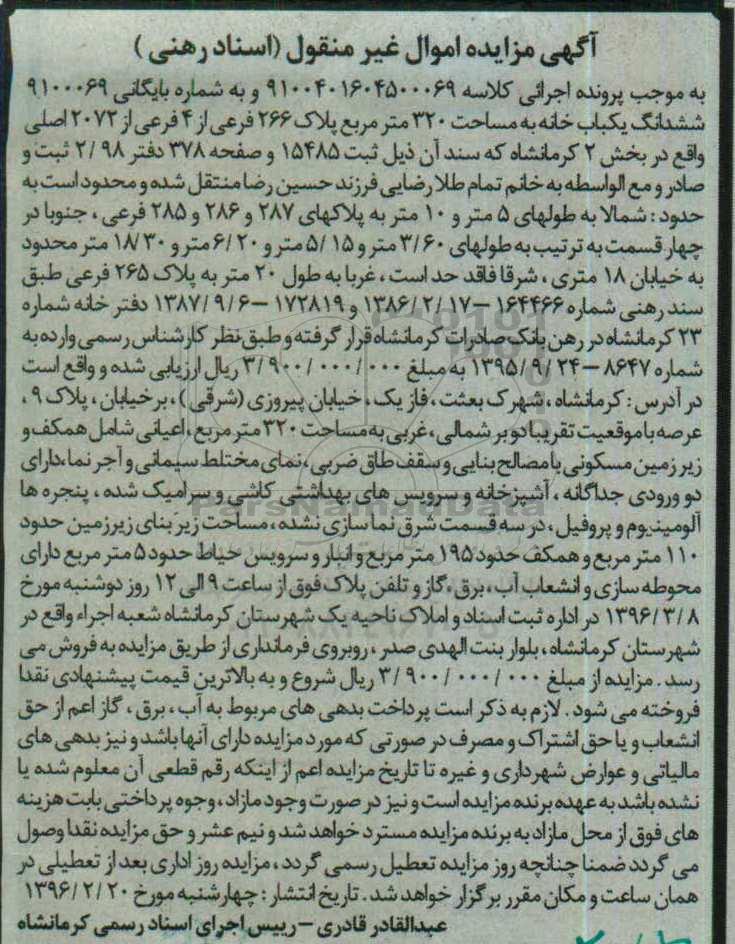 آگهی مزایده اموال غیر منقول (اسناد رهنی)
به موجب پرونده اجرائی کلاسه ۹۱۰۰۴۰۱۶۰۴۵۰۰۰۶۹ و به شماره بایگانی ۹۱۰۰۰۶۹
ششدانگ یکباب خانه به مساحت ۳۲۰ متر مربع پلاک ۲۶۶ فرعی از ۴ فرعی از ۲۰۷۲ اصلی
واقع در بخش ۲ کرمانشاه که سند آن ذیل ثبت ۱۵۴۸۵ و صفحه ۳۷۸ دفتر ۲/۹۸ ثبت و
صادر و مع الواسطه به خانم تمام طلا رضایی فرزند حسین رضا منتقل شده و محدود است به
حدود : شمالا به طولهای ۵ متر و ۱۰ متر به پلاکهای ۲۸۷ و ۲۸۶ و ۲۸۵ فرعی ، جنوبا در
چهار قسمت به ترتیب به طولهای ۳/۶۰ متر و ۵/۱۵ متر و ۶/۲۰ متر و ۱۸/۳۰ متر محدود
به خیابان ۱۸ متری ، شرقا فاقد حد است ، غربا به طول ۲۰ متر به پلاک ۲۶۵ فرعی طبق
سند رهنی شماره ۱۶۴۴۶۶ –۱۳۸۶/۲/۱۷ و ۱۷۲۸۱۹ –۱۳۸۷/۹/۶ دفتر خانه شماره
۲۳ کرمانشاه در رهن بانک صادرات کرمانشاه قرار گرفته و طبق نظر کارشناس رسمی وارده به
شماره ۸۶۴۷ –۱۳۹۵/۹/۲۴ به مبلغ ۳/۹۰۰/۰۰۰/۰۰۰ ریال ارزیابی شده و واقع است
در آدرس : کرمانشاه ، شهرک بعثت ، فاز یک ، خیابان پیروزی (شرقی) ، بر خیابان ، پلاک ۹ ،
عرصه با موقعیت تقریبا دو بر شمالی ، غربی به مساحت ۳۲۰ متر مربع ، اعیانی شامل همکف و
زیر زمین مسکونی با مصالح بنایی و سقف طاق ضربی ، نمای مختلط سیمانی و آجر نما ، دارای
دو ورودی جداگانه ، آشپزخانه و سرویس های بهداشتی کاشی و سرامیک شده ، پنجره ها
آلومینیوم و پروفیل ، در سه قسمت شرق نما سازی نشده ، مساحت زیر بنای زیرزمین حدود
۱۱۰ متر مربع و همکف حدود ۱۹۵ متر مربع و انبار و سرویس حیاط حدود ۵ متر مربع دارای
محوطه سازی و انشعاب آب ، برق ، گاز و تلفن پلاک فوق از ساعت ۹ الی ۱۲ روز دوشنبه مورخ
۱۳۹۶/۳/۸ در اداره ثبت اسناد و املاک ناحیه یک شهرستان کرمانشاه شعبه اجراء واقع در
شهرستان کرمانشاه ، بلوار بنت الهدی صدر ، روبروی فرمانداری از طریق مزایده به فروش می
رسد . مزایده از مبلغ ۳/۹۰۰/۰۰۰/۰۰۰ ریال شروع و به بالاترین قیمت پیشنهادی نقدا
فروخته می شود . لازم به ذکر است پرداخت بدهی های مربوط به آب ، برق ، گاز اعم از حق
انشعاب و یا حق اشتراک و مصرف در صورتی که مورد مزایده دارای آنها باشد و نیز بدهی های
مالیاتی و عوارض شهرداری و غیره تا تاریخ مزایده اعم از اینکه رقم قطعی آن معلوم شده یا
نشده باشد به عهده برنده مزایده است و نیز در صورت وجود مازاد ، وجوه پرداختی بابت هزینه
های فوق از محل مازاد به برنده مزایده مسترد خواهد شد و نیم عشر و حق مزایده نقدا وصول
می گردد ضمنا چنانچه روز مزایده تعطیل رسمی گردد ، مزایده روز اداری بعد از تعطیلی در
همان ساعت و مکان مقرر برگزار خواهد شد . تاریخ انتشار : چهارشنبه مورخ ۱۳۹۶/۲/۲۰
عبدالقادر قادری – رییس اجرای اسناد رسمی کرمانشاه
ParsNamadData